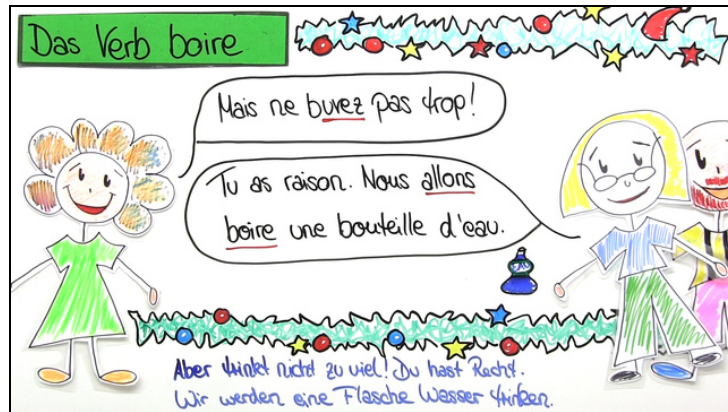 Das Verb boire
Mais ne buvez pas trop!
Tu as raison. Nous allons
boire une bouteille d'eau.
Aber trinkt nicht zu viel! Du hast Recht.
Wir werden eine Flasche Wasser trinken.